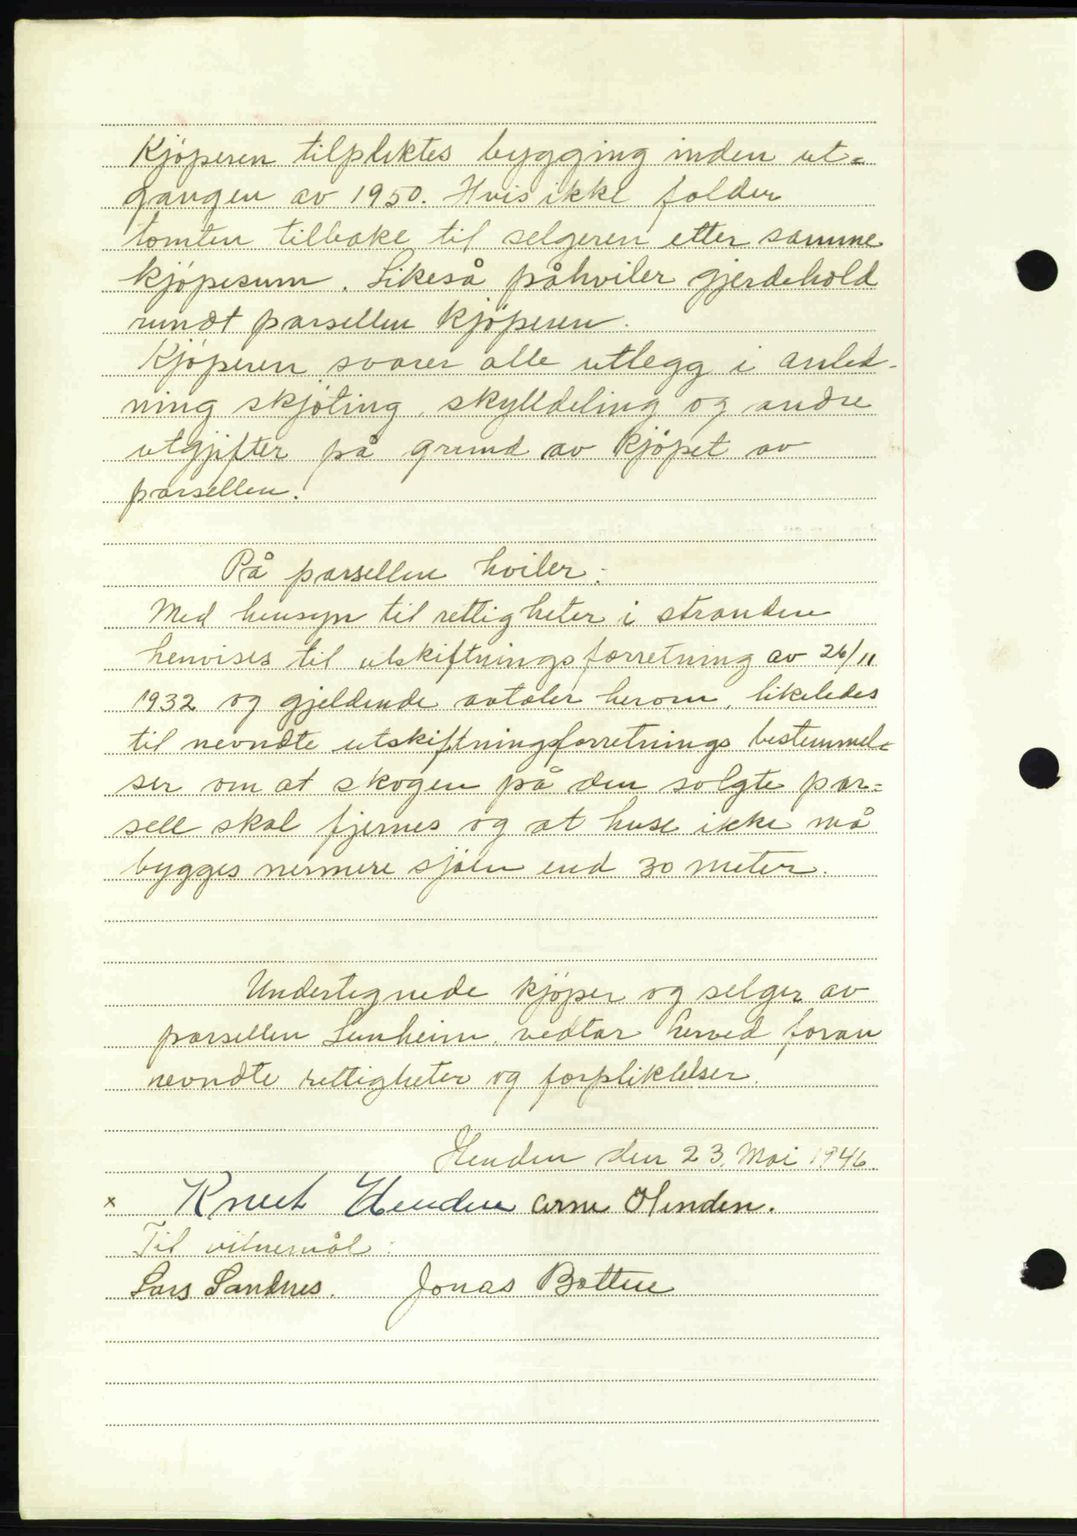 Kjöperen tilpliktes bygging inden ut=
gangen av 1950. Hvis ikke falder
tomten tilbake til selgeren etter samme
kjöpesum. Likeså påhviler gjerdehold
rundt parsellen kjöperen.
Kjöperen svarer alle utlegg i anled-
ning skjöting, skylldeling og andre
utgjifter på grund av kjöpet av
parsellen.
På parsellen hviler:
Med hensyn til rettigheter i stranden
henvises til utskiftningsforretning av 26/11
1932 og gjeldende avtaler herom, likeledes
til nevndte utskiftningsforretnings bestemmel=
ser om at skogen på den solgte par=
sell skal fjernes og at huse ikke må
bygges nermere sjöen end 30 meter.
Undertegnede kjöper og selger av
parsellen Lunheim, vedtar herved foran
nevndte rettigheter og forpliktelser.
Henden den 23. Mai 1946.
x Knut Henden Arne Henden.
Til vitnemål:
Lars Sandnes. Jonas Botten